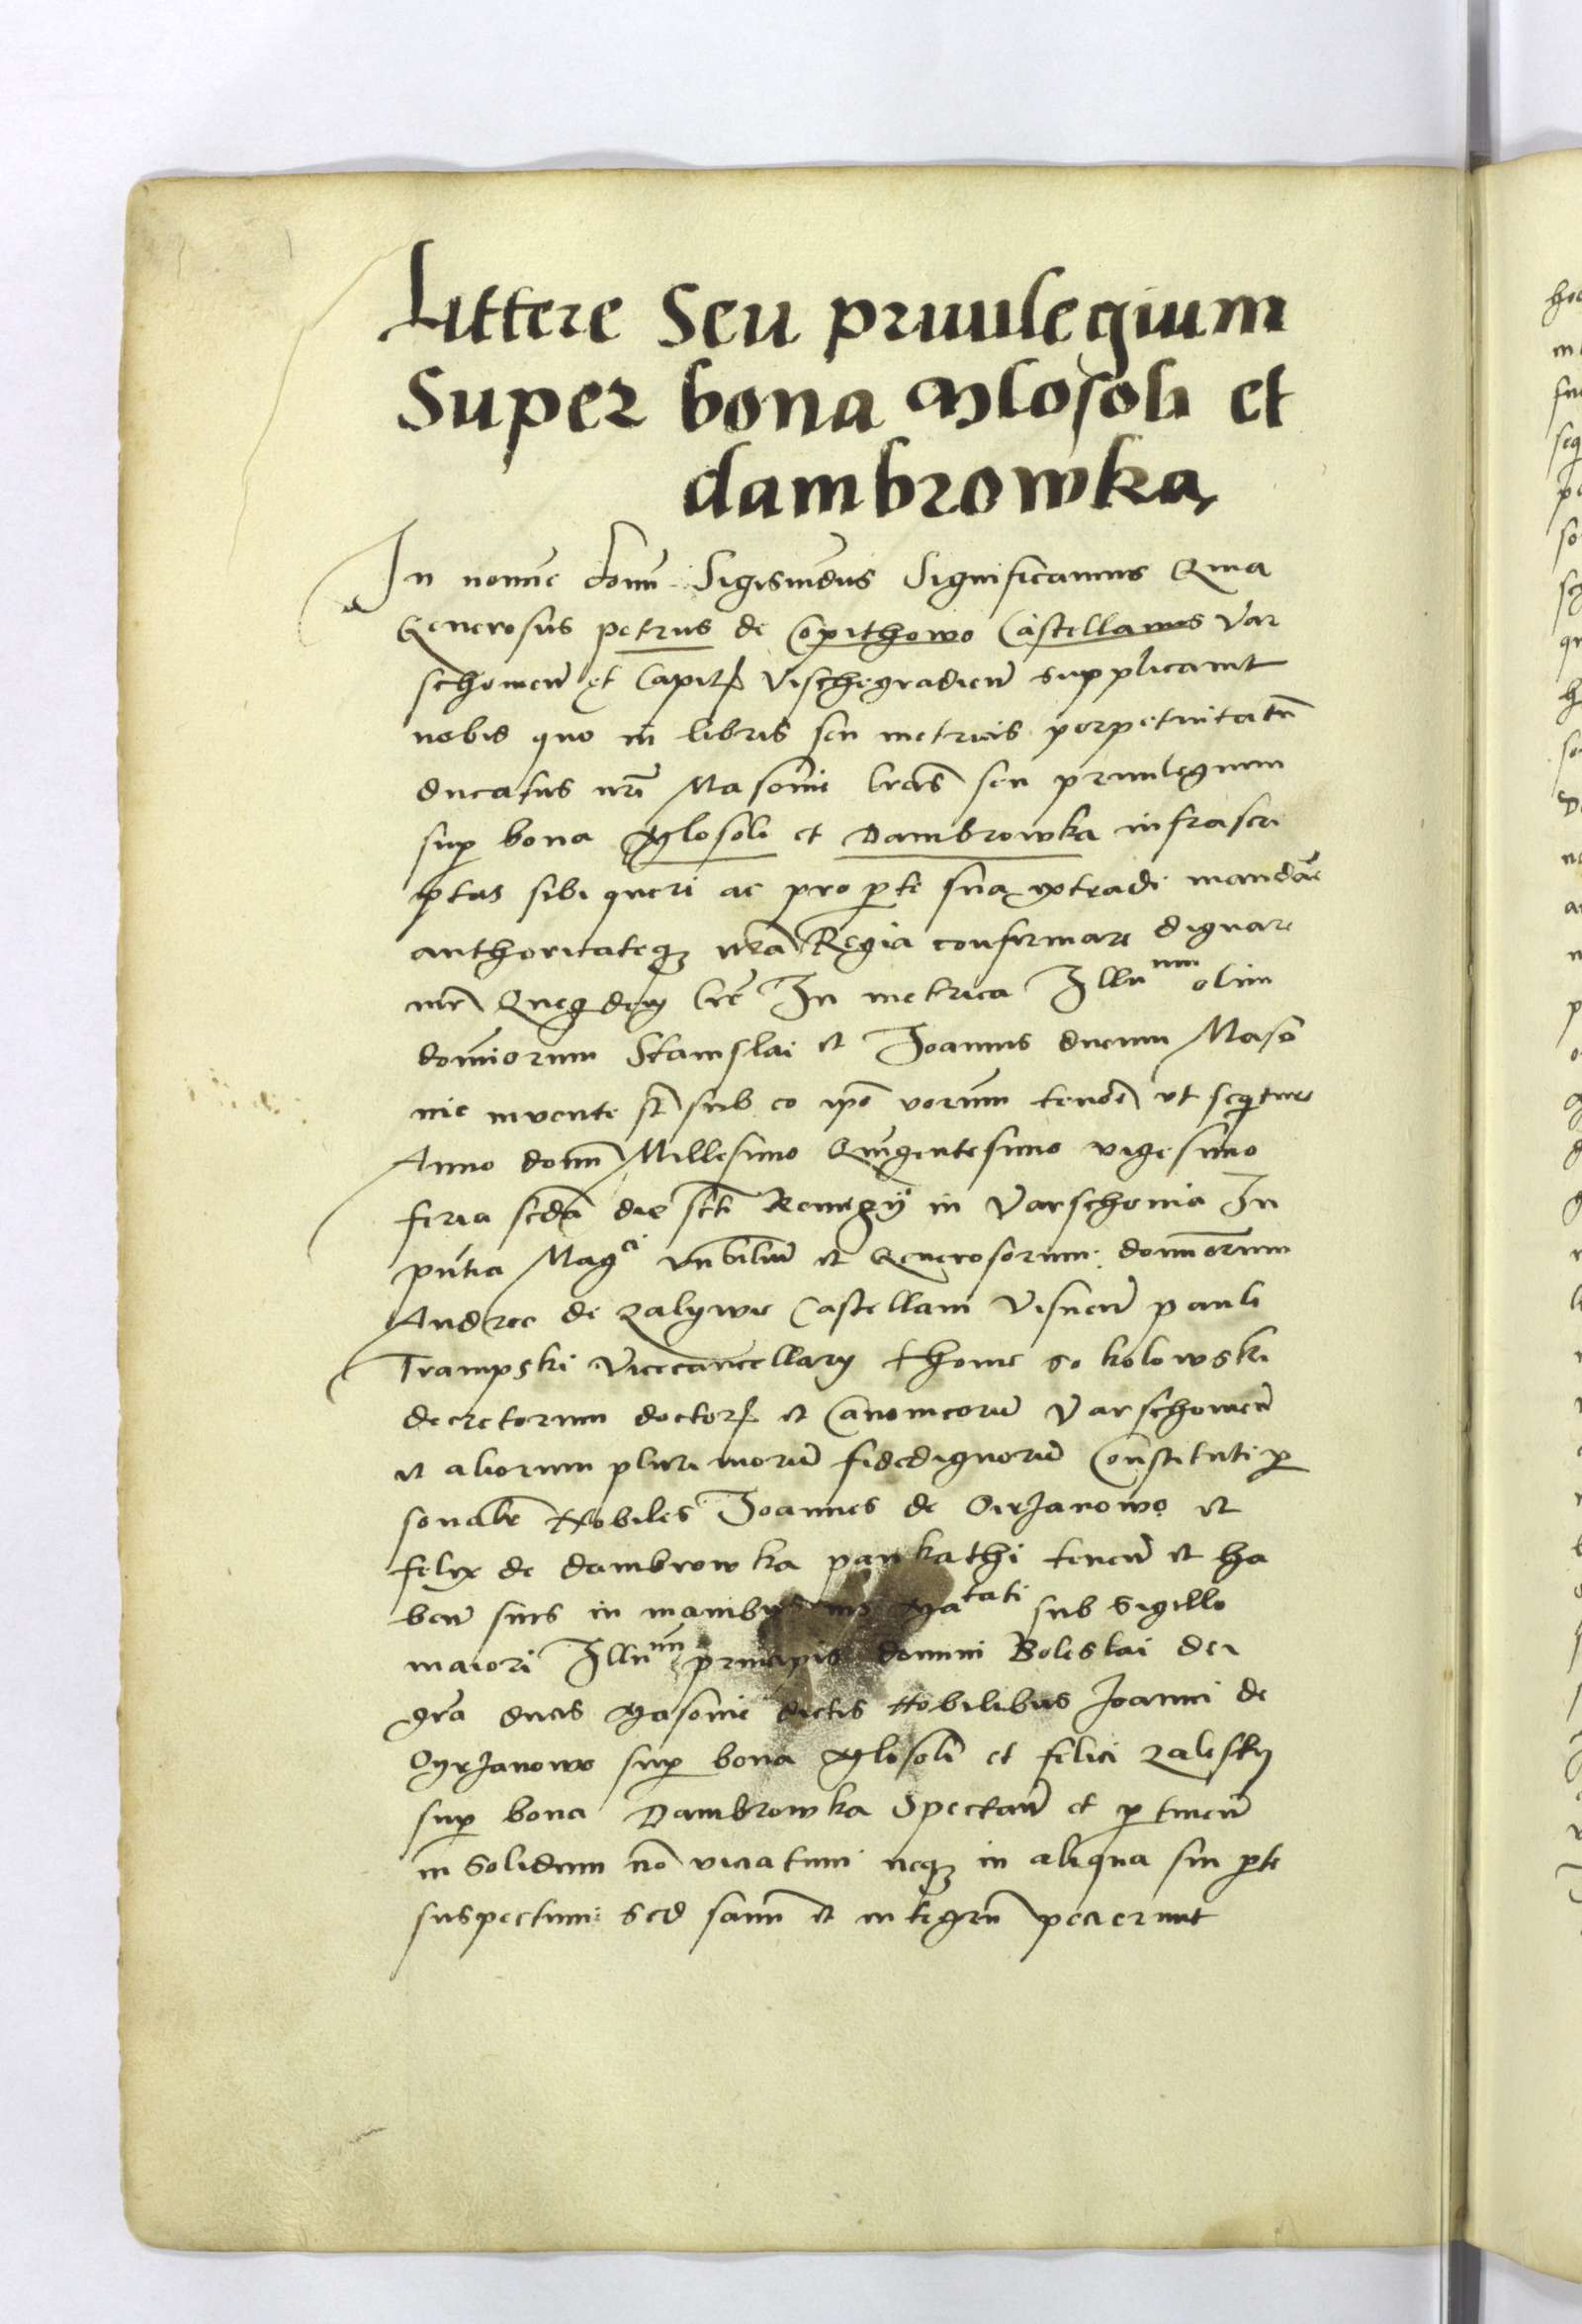 Littere Seu priuilegium
Super bona Mlosoli et
dambrowka
In nomine domini Sigismūdus Significamus Quia
Generosus petrus de Copithowo Castellanus Var
schouień et Capit Vischegradień supplicauit
nobis quo in libris seu metricis perpetuitatū
ducatus nrī Masouie lrās seu priuilegium
sup bona Mlosoli et Dambrowka infrascri
ptas sibi queri ac pro pte sua extradi mandāe
authoritateqz nrā Regia confirmare dignare
mur Queqdem lrē In metrica Illu mm olim
dominorum Stanislai et Joannis ducum Maso
uie inuente st sub eo ipo uorum tenore ut sequitur
Anno domini Millesimo Quingentesimo vigesimo
feria scda die scti Remigij in Varschouia In
pntia Mag ci vnbilium et Generosorum dominorum
Andree de Zalywie Castellani Visneń pauli
Trampski Vicecancellarij thome sokolowski
decretorum doctor et Canonicorū Varschouień
et aliorum plurimorū fidedignorū Constituti p
sonalr Nobiles Joannes de Cirzanowo et
felix de dambrowka pankathi teneń et ha
beń suis in manibus Ma tati sub sigillo
maiori Illu mi principis domini Boleslai dei
gra ducis Masouie dictis Nobilibus Joanni de
Cyrzanowo sup bona Mlosoli et felici Zalesky
sup bona Dambrowka Spectań et ptineń
in Solidum nō viciatum neqz in aliqua sui pte
suspectum sed sanū et integrū pecierunt